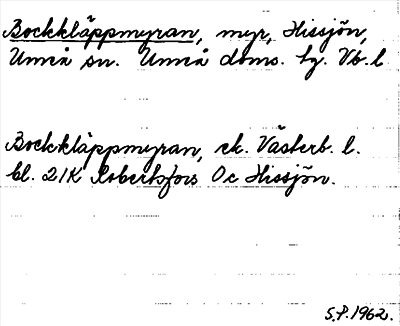 Bockkläppmyran, myr, Hissjön,
Umeå sn. Umeå doms. hg. Vb. l
Bockkläppmyran, ek. Västerb. l.
bl. 21K Robertsfors 0c Hissjön.
S.P. 1962.